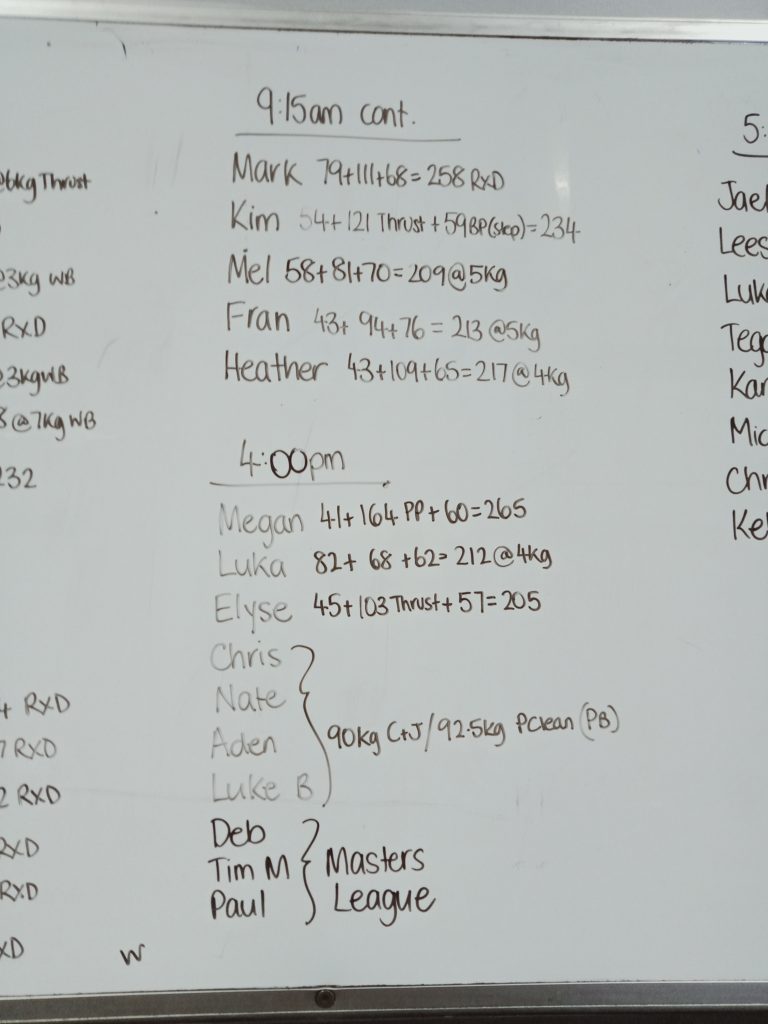 9:15am cont.
Mark 79+111+68=258 RXD
Kim 54+121 Thrust+59BP(step)=234
Mel 58+81+70=209@5kg
Fran 43+ 94+76=213@5kg
Heather 43+109+65=217@4kg
4:00pm
Megan 41+164 PP+60=265
Luka 82+ 68 +62=212@4kg
Elyse 45+103 Thrust+57=205
Chris
Nate
90kg C+J/92.5kg PClean (PB)
Aden
Luke B
Deb
Tim M Masters
Paul League
6kg Thrust
@3kg WB
RXD
@3kgWB
@7kg WB
232
RXD
RXD
2 RXD
RXD
RXD
XD
W
5:
Jael
Lees
Luk
Kar
Mic
Chr
Kel